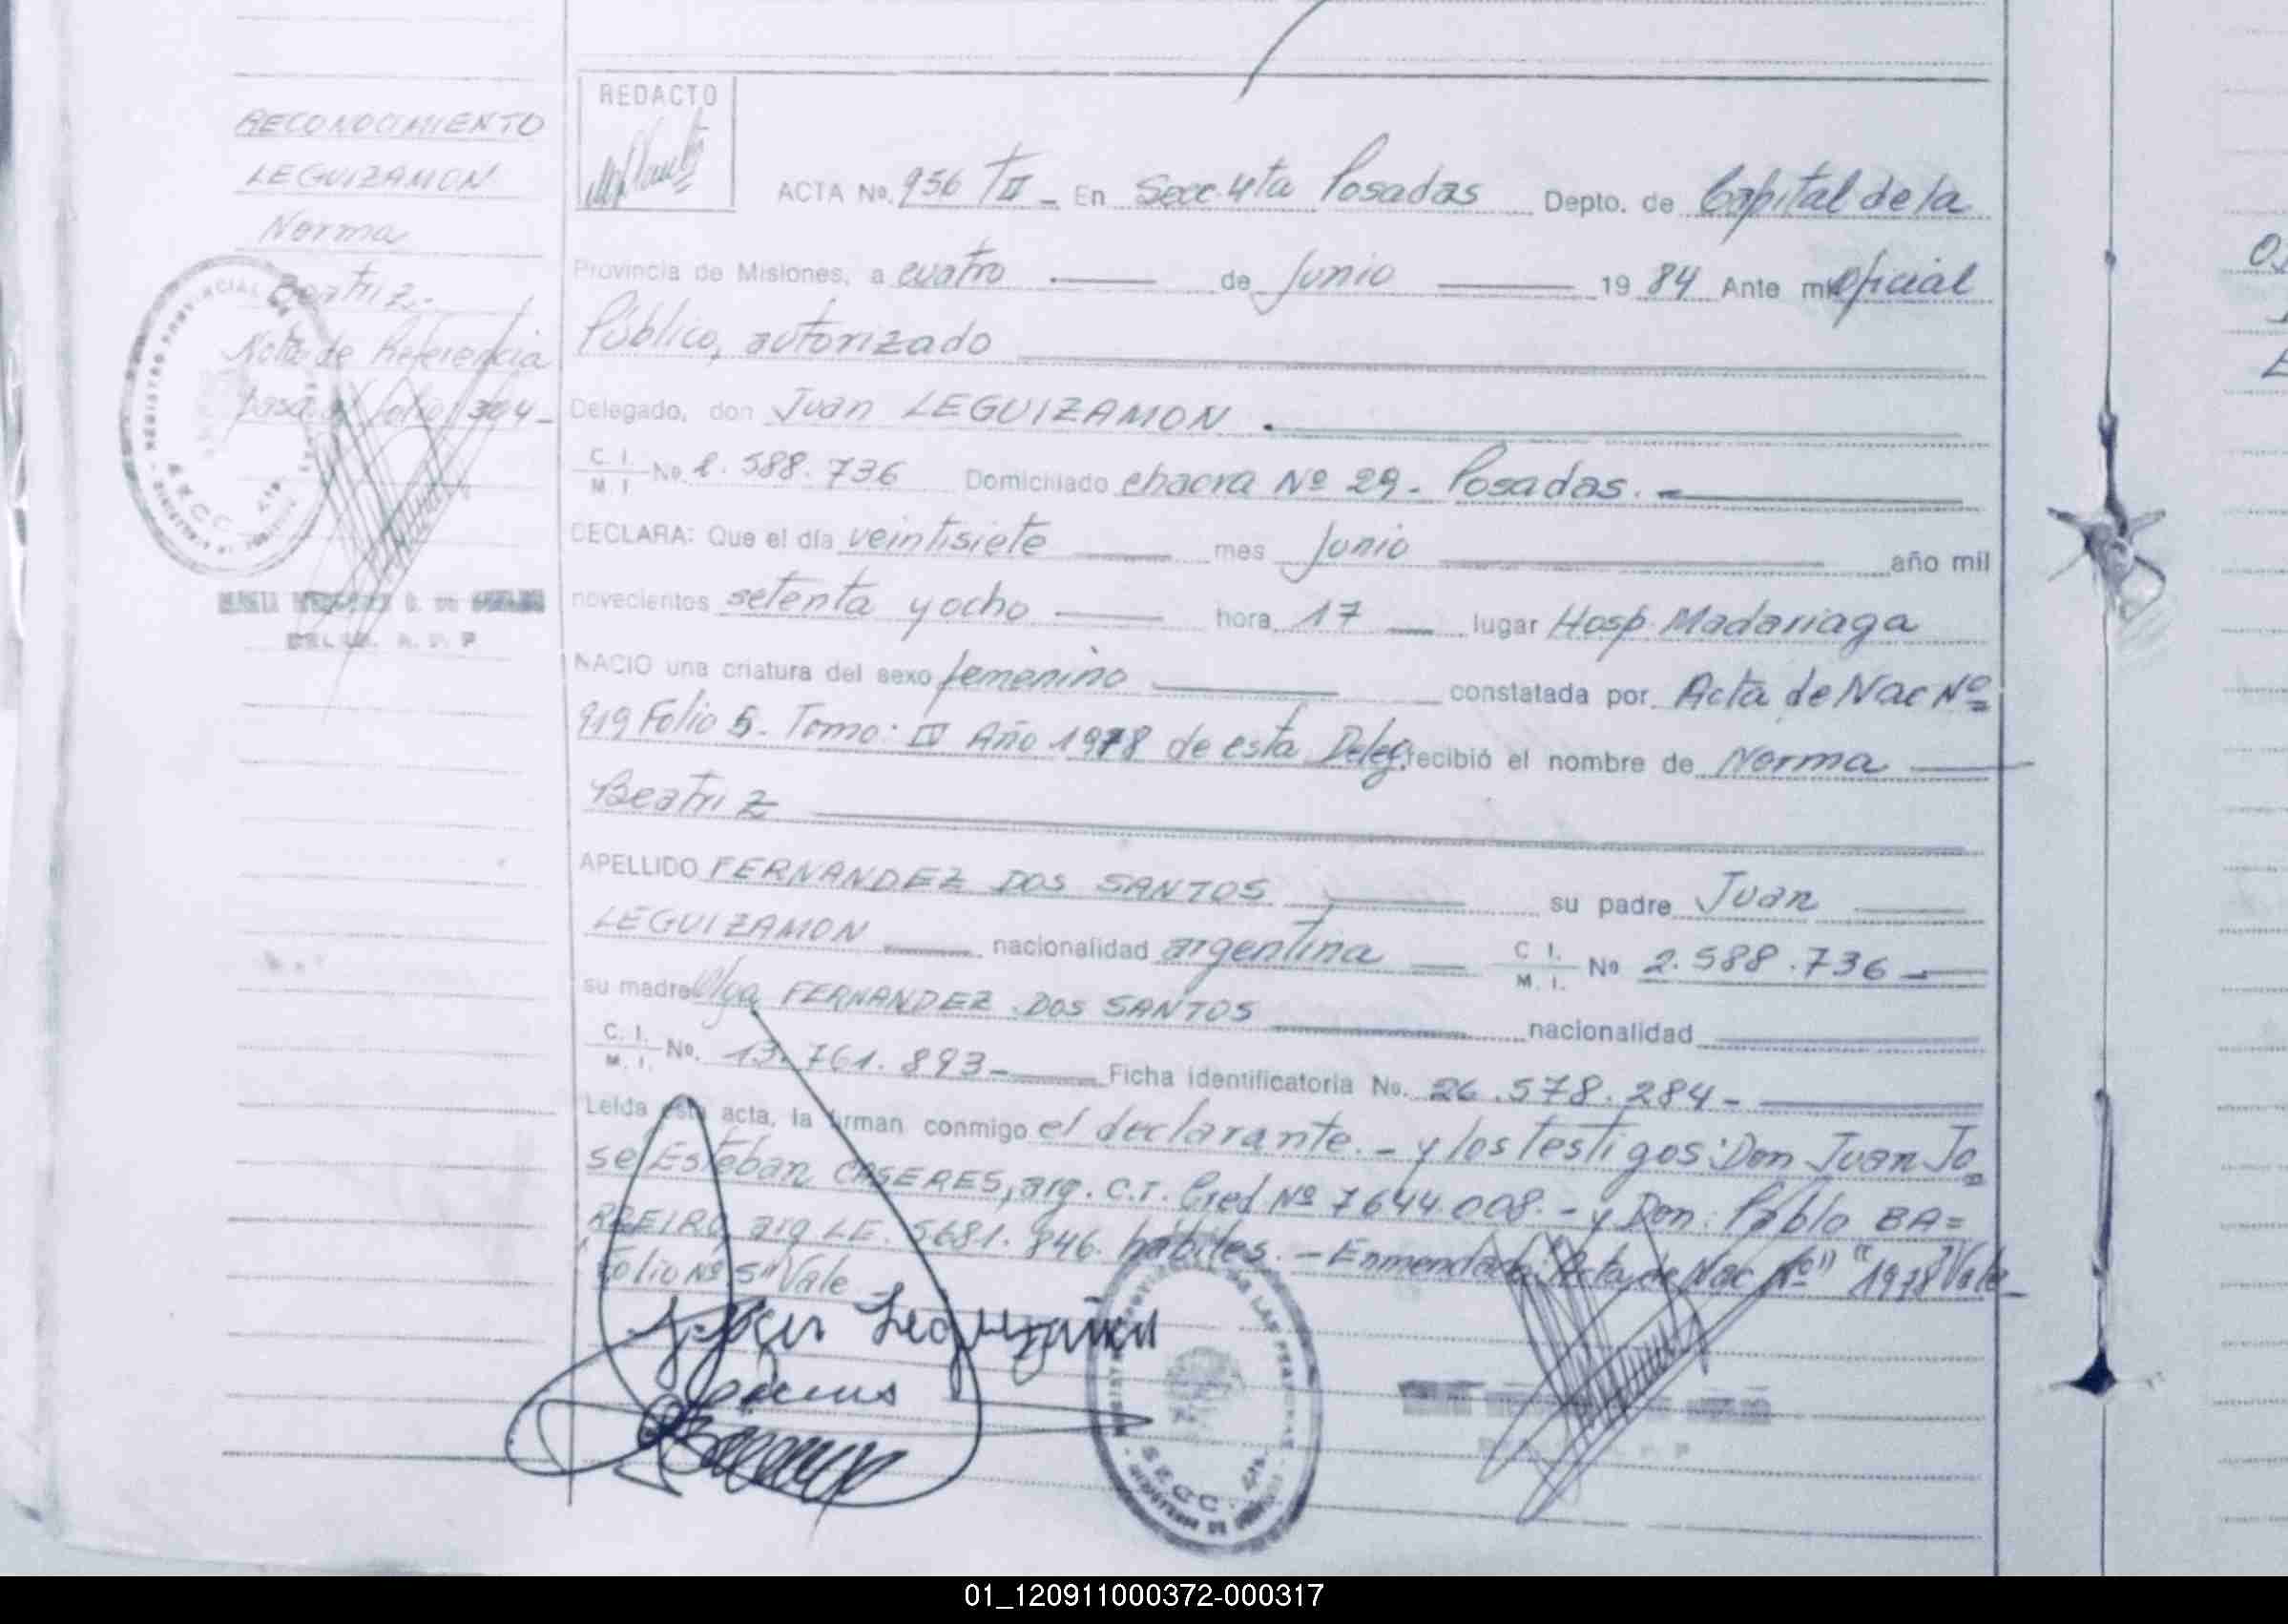 RECONOCIMIENTO
LEGUIZAMON
Norma
Beatriz.-
Nota de Referencia
pasa al folio 304-
REDACTO
ACTA No. 956 TII - En Secc. 4ta Posadas Depto. de Capital de la
Provincia de Misiones, a cuatro de Junio 19 84 Ante mi Oficial
Público, autorizado
Delegado, don Juan LEGUIZAMON.
C. I. M. I. No. 2.588.736 Domiciliado chacra Nº 29- Posadas.-
DECLARA: Que el día veintisiete mes Junio año mil
novecientos setenta y ocho hora 17 lugar Hosp. Madariaga
NACIO una criatura del sexo femenino constatada por Acta de Nac Nº
919 Folio 5- Tomo: II Año 1978 de esta Deleg. recibió el nombre de Norma
Beatriz
APELLIDO FERNANDEZ DOS SANTOS su padre Juan
LEGUIZAMON nacionalidad argentina C I. M. I. No 2.588.736-
su madre Olga FERNANDEZ DOS SANTOS nacionalidad
C. I. M. I. No. 13.761.893- Ficha identificatoria No. 26.578.284-
Leída esta acta, la firman conmigo el declarante.- y los testigos: Don Juan Jo
se Esteban CASERES, arg. C.I. Cred Nº 7644.008.- y Don: Pablo BA=
RREIRO arg LE. 5681.846. hábiles.- Enmendado: "Acta de Nac Nº" "1978" Vale-
Folio Nº 5" Vale
SECC. 4ta.
01_120911000372-000317